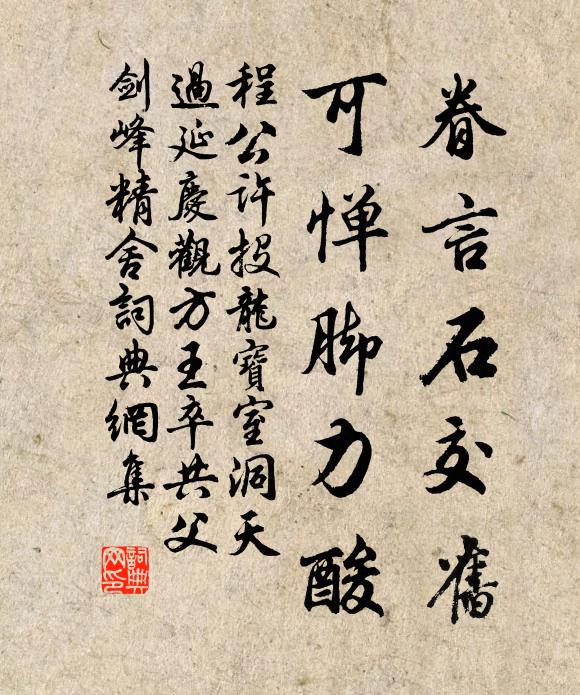 眷言石交舊
可惮脚力酸
程公许投龍寶室洞天
過延慶觀方王卒共父
劍峰精舍詞典網集
詞典网印